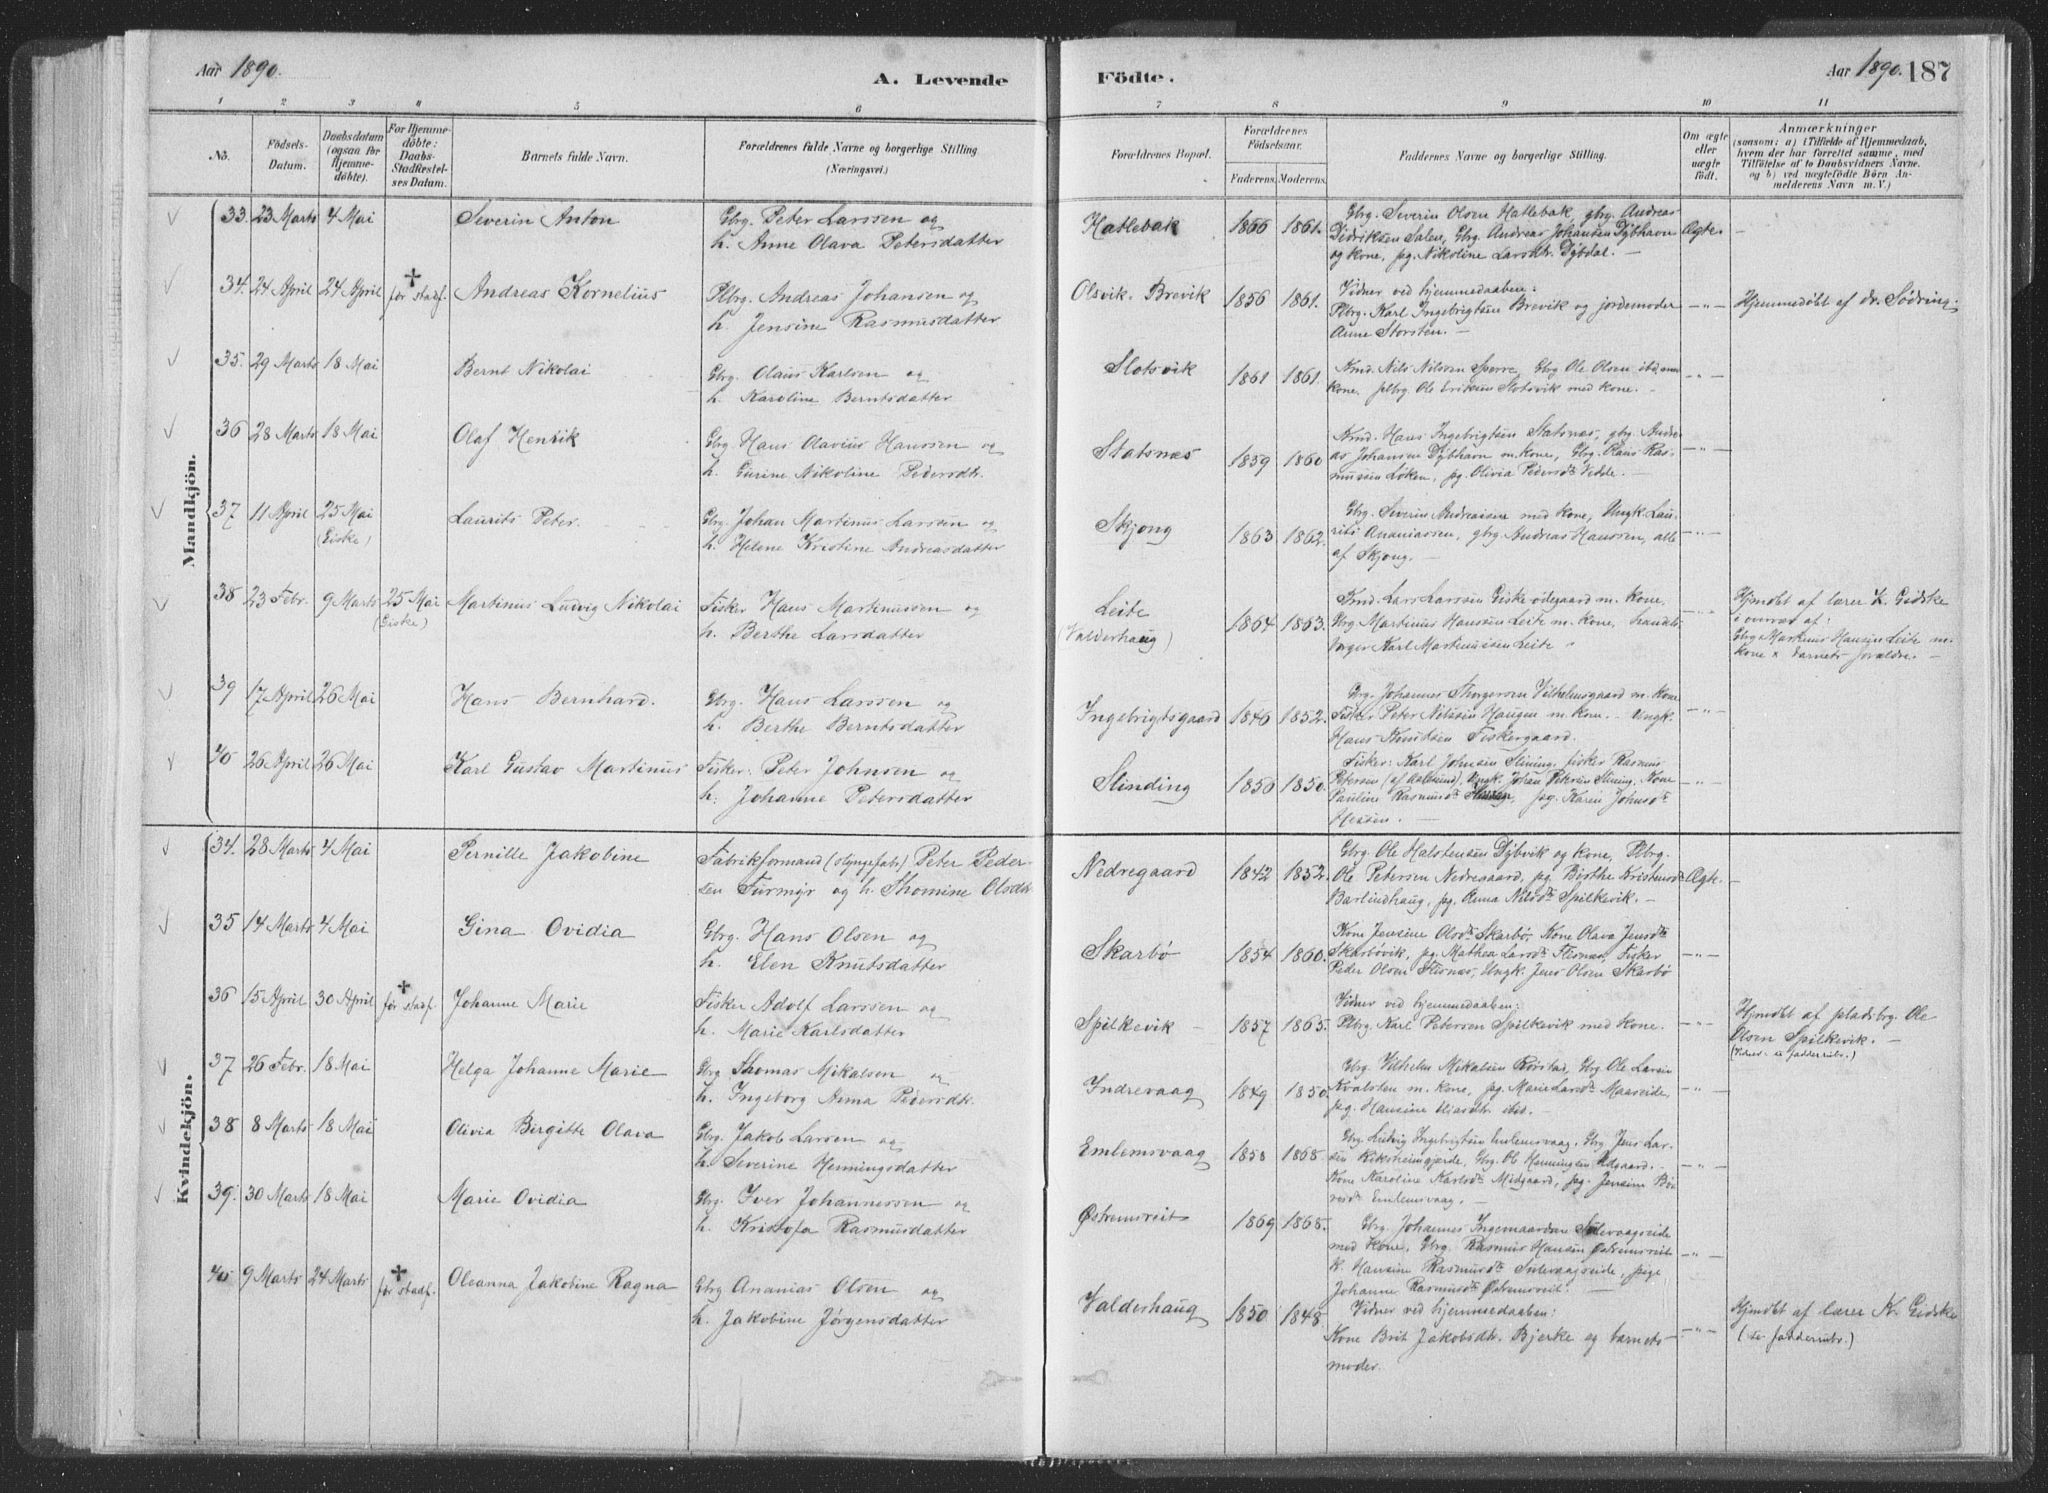 Aar 1890.
A. Levende
Födte.
Aar 1890. 187
1 2 3 4 5 6 7 8 9 10 11
No. Födsels-Datum. Daabsdatum (ogsaa for Hjemme-döbte). For Hjemme-döbte: Daabs-Stadfæstel-ses Datum. Barnets fulde Navn. Forældrenes fulde Navne og borgerlige Stilling (Næringsvei.) Forældrenes Bopæl. Forældrenes Födselsaar. Faderens. Moderens. Faddernes Navne og borgerlige Stilling. Om ægte eller uægte födt. Anmærkninger
(saasom: a) i Tilfælde af Hjemmedaab,
hvem der har forrettet samme, med
Tilföielse af to Daabsvidners Navne.
og b) ved uægtefödte Börn An-
melderens Navn m. V.)
Mandkjön.
33. 23 Marts 4 Mai Severin Anton Gbrg. Peter Larssen og
h. Anne Olava Petersdatter
Hatlebak 1866 1861. Gbrg. Severin Olsen Hatlebak, gbrg. Andreas
Didriksen Salen, Gbrg. Andreas Johansen Dybhavn
og kone, pg. Nikoline Larsdtr. Dybdal. —
Ægte. —
34. 24 April 24 April + før stadf. Andreas Kornelius Plbrg. Andreas Johansen og
h. Jensine Rasmusdatter
Olsvik. Brevik 1856 1861. Vidner ved hjemmedaaben:
Plbrg. Karl Ingebrigtsen Brevik og jordemoder
Anne Storsten. —
Hjemmedøbt af dr. Sødring.
35. 29 Marts 18 Mai Bernt Nikolai Gbrg. Olaus Karlsen og
h. Karoline Berntsdatter
Slotsvik 1861 1861. Kmd. Nils Nilsen Sperre, Gbrg Ole Olsen ibd, med
kone, plbrg. Ole Eriksen Slotsvik med kone. —
36 28 Marts 18 Mai Olaf Henrik Gbrg Hans Olavius Hanssen og
h. Gurine Nikoline Pedersdtr.
Statsnæs 1859 1860 Kmd. Hans Ingebrigtsen Statsnæs, gbrg. Andre-
as Johansen Dybhavn m. kone, Gbrg. Claus Ras-
mussen Løken, pg. Olivia Pedersdtr Vedde. —
37 11 April 25 Mai (Giske) Laurits Peter. Gbrg. Johan Martinus Larssen og
h. Helene Kristine Andreasdatter
Skjong 1863 1862. Gbrg. Severin Andreassen med kone, Ungk. Lau-
rits Ananiassen, gbrg Andreas Hanssen, alle
af Skjong. —
38 23 Febr. 9 Marts 25 Mai (Giske) Martinus Ludvig Nikolai Fisker Hans Martinussen og
h. Berthe Larsdatter
Leite
(Valderhaug) 1864 1863. Kmd. Lars Larssen Giske ødegaard m. kone,
Gbrg Martinus Hanssen Leite m. kone, handels-
borger Karl Martinussen Leite
Hjmdøbt af lærer K. Gidske
i overvær af:
Gbrg Martinus Hansen Leite m.
kone & barnets forældre. —
39 17 April 26 Mai Hans Bernhard. Gbrg. Hans Larssen og
h. Berthe Berntsdatter
Ingebrigtsgaard 1846 1852. Gbrg. Johannes Thorgersen Vilhelmsgaard m. kone
Fisker Peter Nilssen Haugen m. kone. Ungk.
Hans Knudsen Fiskergaard.
40 26 April 26 Mai Karl Gustav Martinus Fisker: Peter Johnsen og
h: Johanne Petersdatter
Slinding 1856 1850. Fisker: Karl Johnsen Slining, fisker Rasmus
Petersen (af Aalesund), Ungk. Johan Petersen Slining, Kone
Pauline Rasmusdtr, pg. Karen Johnsdtr
Hessen. —
Kvindekjön.
34. 28 Marts 4 Mai Pernille Jakobine Fabrikformand (olyngefab.) Peter Peder-
sen Furmyr og h. Thomine Olsdtr.
Nedregaard 1842 1852. Gbrg. Ole Halstensen Dybvik og kone, Plbrg.
Ole Petersen Nedregaard, pg Birthe Kristensdtr
Barlindhaug, pg. Anna Nilsdtr Spilkevik. —
Ægte. —
35 14 Marts 4 Mai Gina Ovidia Gbrg. Hans Olsen og
h. Elen Knutsdatter
Skarbø 1854 1860. Kone Jensine Olsdtr Skarbø, Kone Olava Jensdtr
Skarbøvik, pg. Mathea Larsdtr Flesnæs, Fisker
Peder Olsen Flesnæs, Ungk. Jens Olsen Skarbø
36 15 April 30 April + før stadf. Johanne Marie Fisker Adolf Larssen og
h. Marie Karlsdatter
Spilkevik 1857 1865. Vidner ved hjemmedaaben:
Plbrg. Karl Petersen Spilkevik med kone. —
Hjmdøbt af pladsbrg. Ole
Olsen Spilkevik. —
(Vidner: se fadderrubr.)
37 26 Febr. 18 Mai Helga Johanne Marie Gbrg Thomas Mikalsen og
h. Ingeborg Anna Pedersdtr.
Indrevaag 1849 1850. Gbrg. Vilhelm Mikalsen Rørstad, Gbrg Ole Larsen
Kvalsten m. kone, pg. Marie Larsdtr Maaseide,
pg. Hansine Eliasdtr. ibd. —
38 8 Marts 18 Mai Olivia Birgitte Olava Gbrg. Jakob Larsen og
h. Severine Henningsdatter
Emlemsvaag 1858 1868. Gbrg Ludvig Ingebrigtsen Emlemsvaag, Gbrg Jens Lar-
sen Riksheimgjerde, Gbrg. Ole Henningsen Midgaard. —
Kone Karoline Karlsdtr Midgaard, pg. Jensine
Emlemsvaag. —
39. 30 Marts 18 Mai Marie Ovidia Gbrg. Iver Johannessen og
h. Kristofa Rasmusdatter
Østremsreit 1869 1868. Gbrg. Johannes Ingemaardsen Sulevaagseide
med kone, Gbrg. Rasmus Hansen Østremsreit
k. Hansine Rasmusdtr Sulevaagseide, pige
Johanne Rasmusdtr Østremsreit. —
40 9 Marts 24 Marts + før stadf. Oleanna Jakobine Ragna Gbrg Ananias Olsen og
h. Jakobine Jørgensdatter
Valderhaug 1850 1848. Vidner ved hjemmedaaben:
Kone Brit Jakobsdtr. Bjerke og barnets
moder.
Hjmdøbt af lærer K. Gidske
(se fadderrubr.)